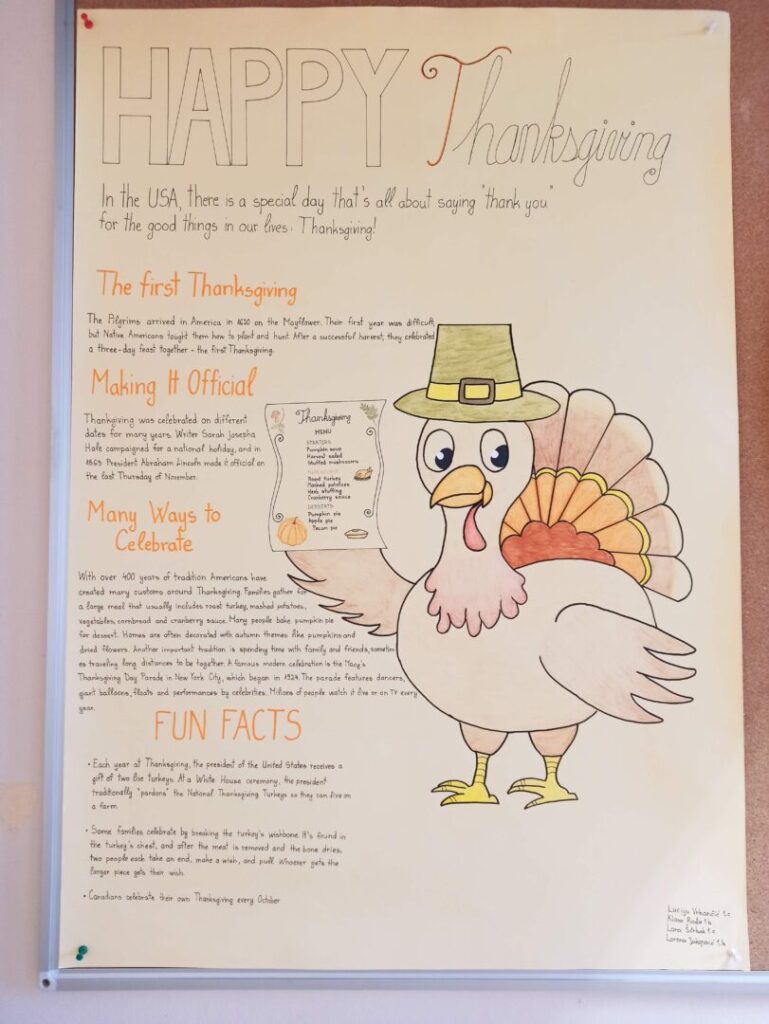 HAPPY Thanksgiving
In the USA, there is a special day that's all about saying "thank you"
for the good things in our lives: Thanksgiving!
The first Thanksgiving
The Pilgrims arrived in America in 1620 on the Mayflower. Their first year was difficult,
but Native Americans taught them how to plant and hunt. After a successful harvest, they celebrated
a three-day feast together - the first Thanksgiving.
Making It Official
Thankgiving was celebrated on different
dates for many years. Writer Sarah Josepha
Hale campaigned for a national holiday, and in
1863 President Abraham Lincoln made it official on
the last Thursday of November.
Thanksgiving
MENU
STARTERS:
Pumpkin soup
Harvest salad
Stuffed mushrooms
Roast turkey
Mashed potatoes
Herb stuffing
Cranberry sauce
DESSERTS:
Pumpkin pie
Apple pie
Pecan pie
Many Ways to
Celebrate
With over 400 years of tradition Americans have
created many customs around Thanksgiving. Families gather for
a large meal that usually includes roast turkey, mashed potatoes,
vegetables, cornbread and cranberry sauce. Many people bake pumpkin pie
for dessert. Homes are often decorated with autumn themes like pumpkins and
dried flowers. Another important tradition is spending time with family and friends, sometim-
es traveling long distances to be together. A famous modern celebration is the Macy's
Thanksgiving Day Parade in New York City, which began in 1924. The parade features dancers,
giant balloons, floats and performances by celebrities. Millions of people watch it live or on TV every
year.
FUN FACTS
• Each year at Thanksgiving, the president of the United States receives a
gift of two live turkeys. At a White House ceremony, the president
traditionally "pardons" the National Thanksgiving Turkeys so they can live on
a farm.
• Some families celebrate by breaking the turkey's wishbone. It's found in
the turkey's chest, and after the meat is removed and the bone dries,
two people each take an end, make a wish, and pull. Whoever gets the
larger piece gets their wish.
• Canadians celebrate their own Thanksgiving every October
Lara 1.c
Lorena 1.b